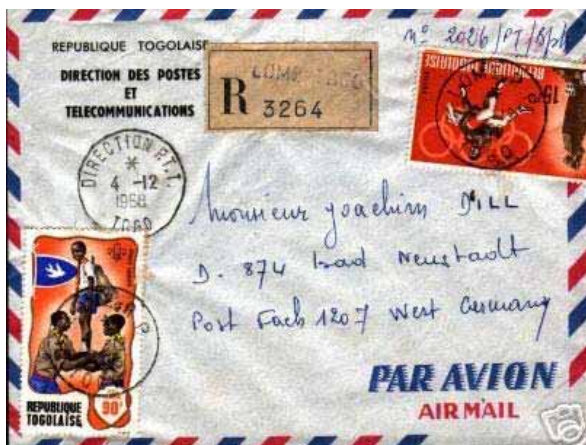 REPUBLIQUE TOGOLAISE
DIRECTION DES POSTES
ET
TELECOMMUNICATIONS
R
LOME TOGO
3264
n° 2026/PT/
REPUBLIQUE TOGOLAISE
15F
DIRECTION P.T.T.
4 -12
1968
TOGO
Monsieur Joachim DILL
D. 874 Bad Neustadt
Post Fach 1207 West Germany
REPUBLIQUE
TOGOLAISE
90F
PAR AVION
AIR MAIL